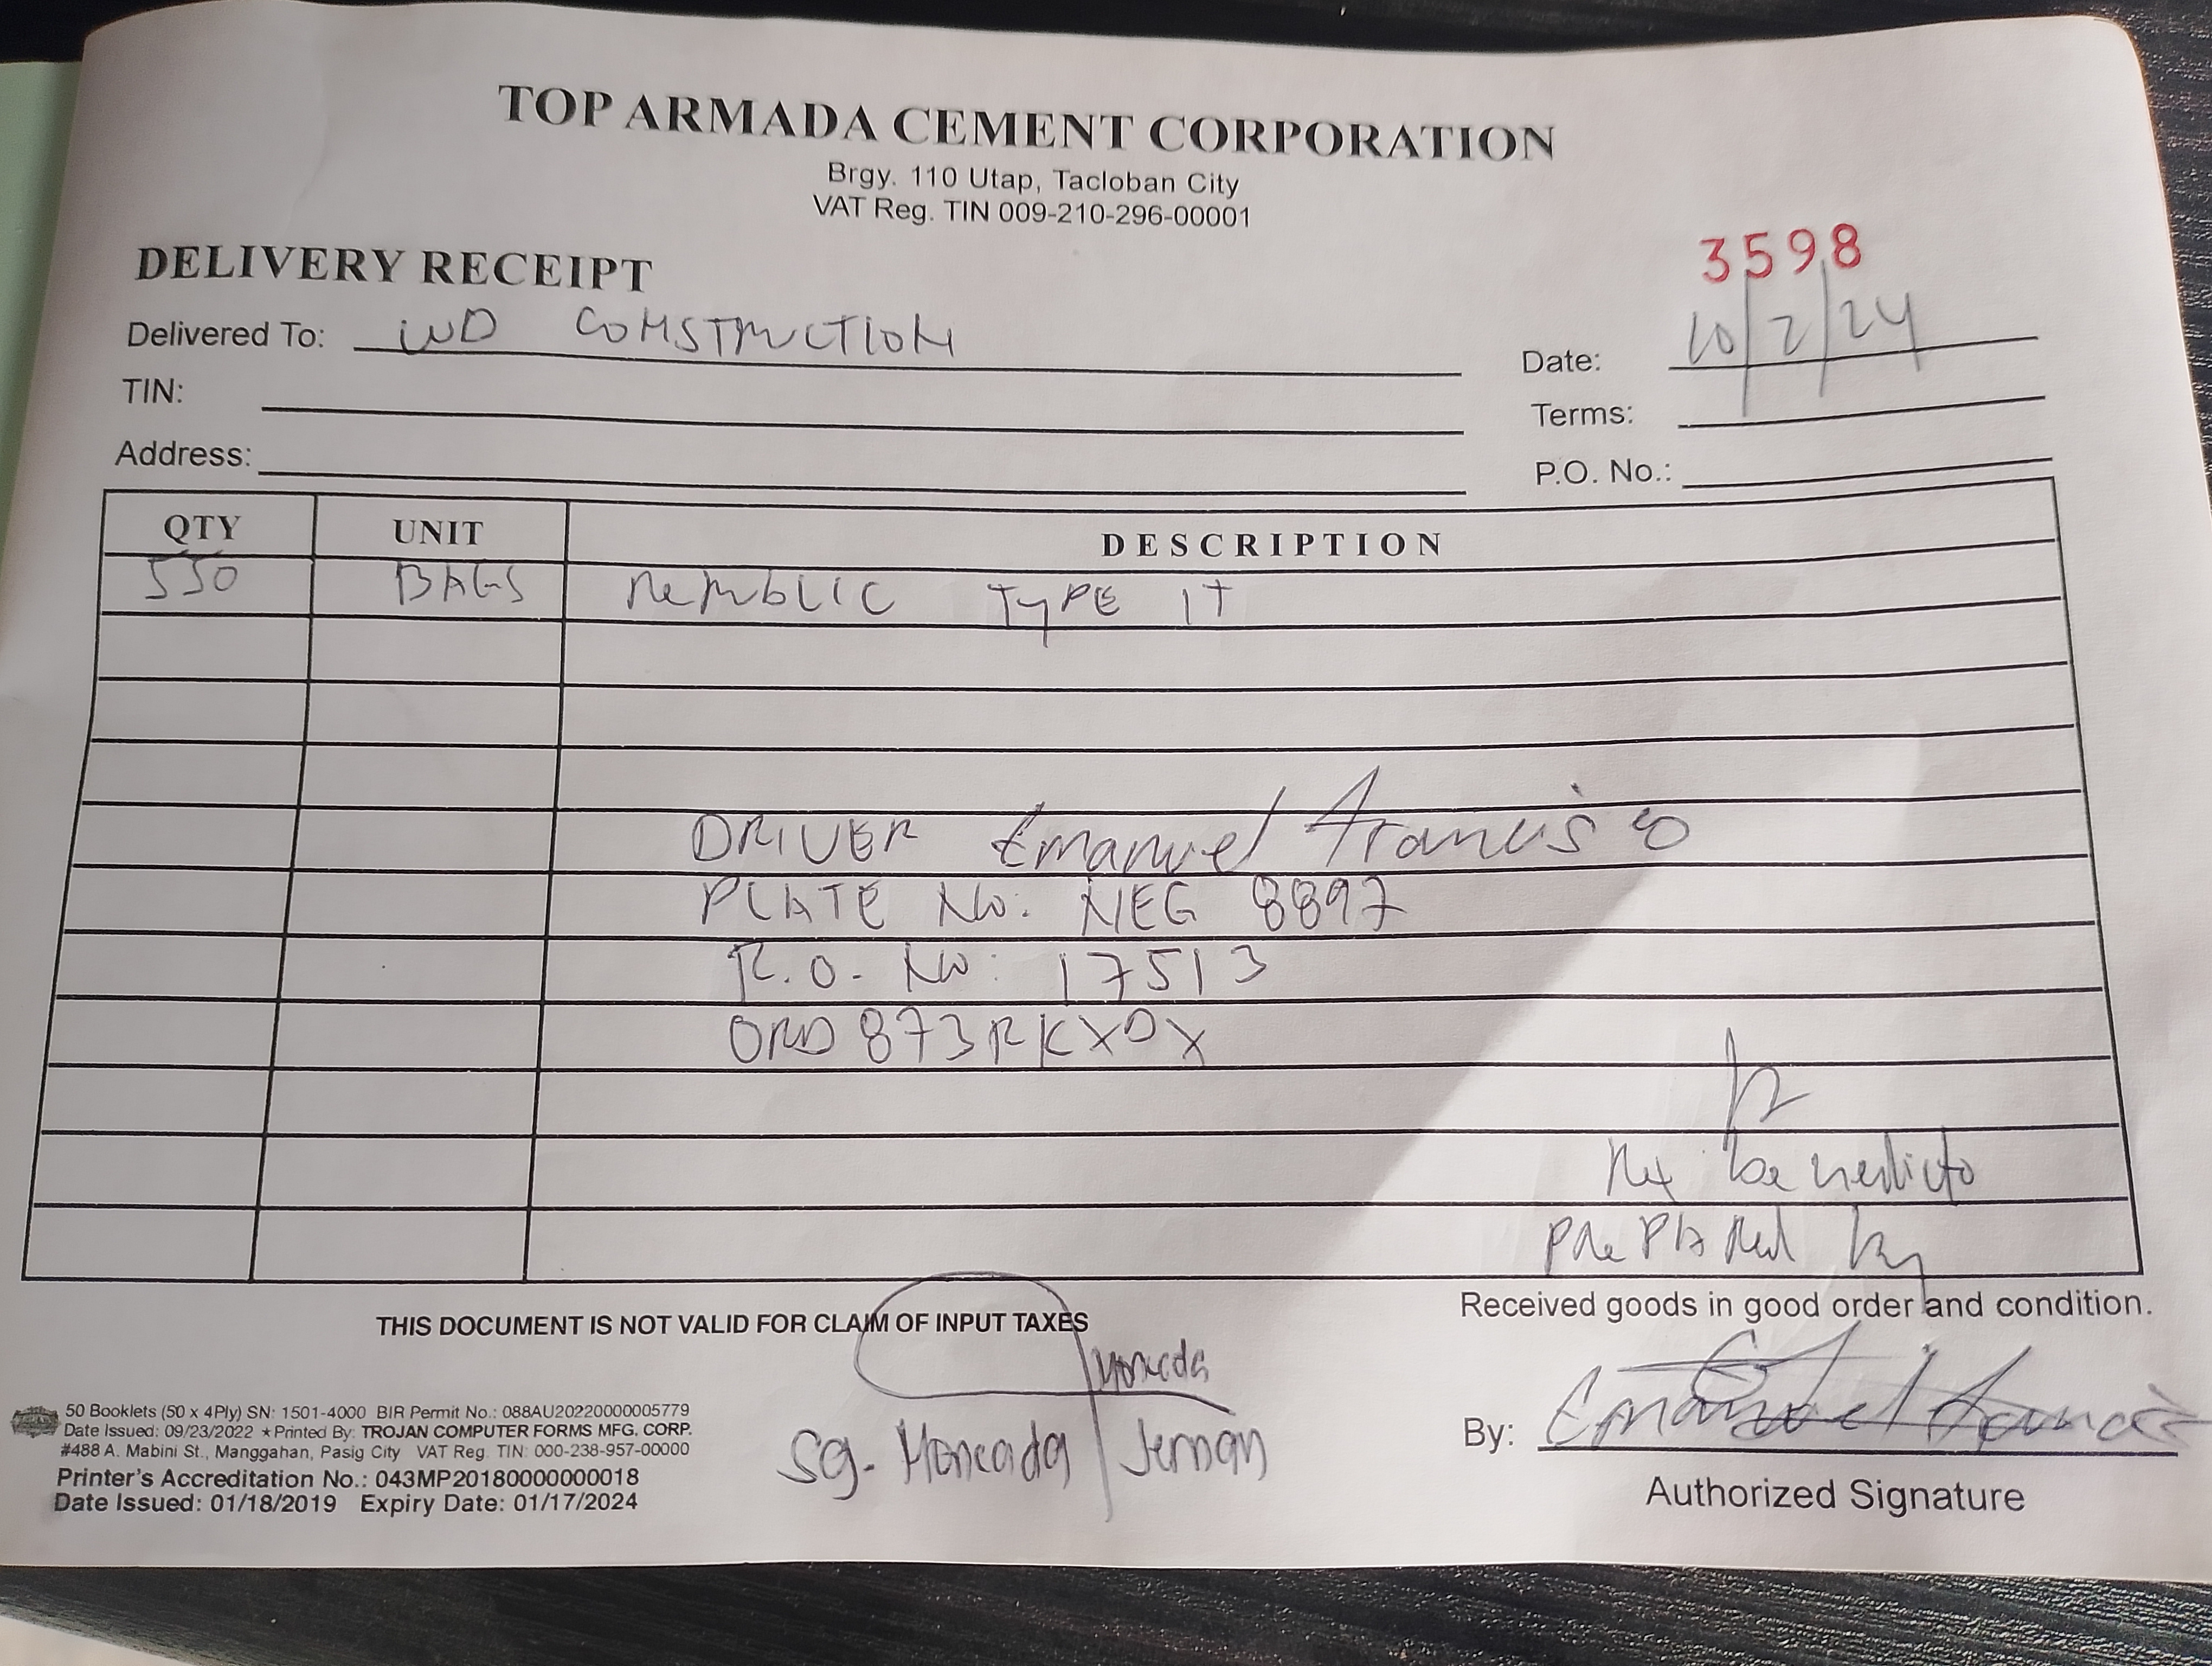 TOP ARMADA CEMENT CORPORATION
Brgy. 110 Utap, Tacloban City
VAT Reg. TIN 009-210-296-00001
3598
DELIVERY RECEIPT
Delivered To: CONSTRUCTION
Date: 10/2/24
TIN:
Terms:
Address:
P.O. No.:
QTY UNIT DESCRIPTION
550 BAGS REPUBLIC TYPE 1T
DRIVER Emanuel Francisco
PLATE No: NEG 8897
R.O. No: 17513
ORD 873RKXDX
Rex Benedicto
PREPARED by
THIS DOCUMENT IS NOT VALID FOR CLAIM OF INPUT TAXES
Received goods in good order and condition.
Moncada
Sg. Moncada / Jernan
By: Emanuel Francis
Authorized Signature
50 Booklets (50 x 4Ply) SN: 1501-4000 BIR Permit No.: 088AU20220000005779
Date Issued: 09/23/2022 ★ Printed By: TROJAN COMPUTER FORMS MFG. CORP.
#488 A. Mabini St., Manggahan, Pasig City VAT Reg. TIN: 000-238-957-00000
Printer's Accreditation No.: 043MP20180000000018
Date Issued: 01/18/2019 Expiry Date: 01/17/2024